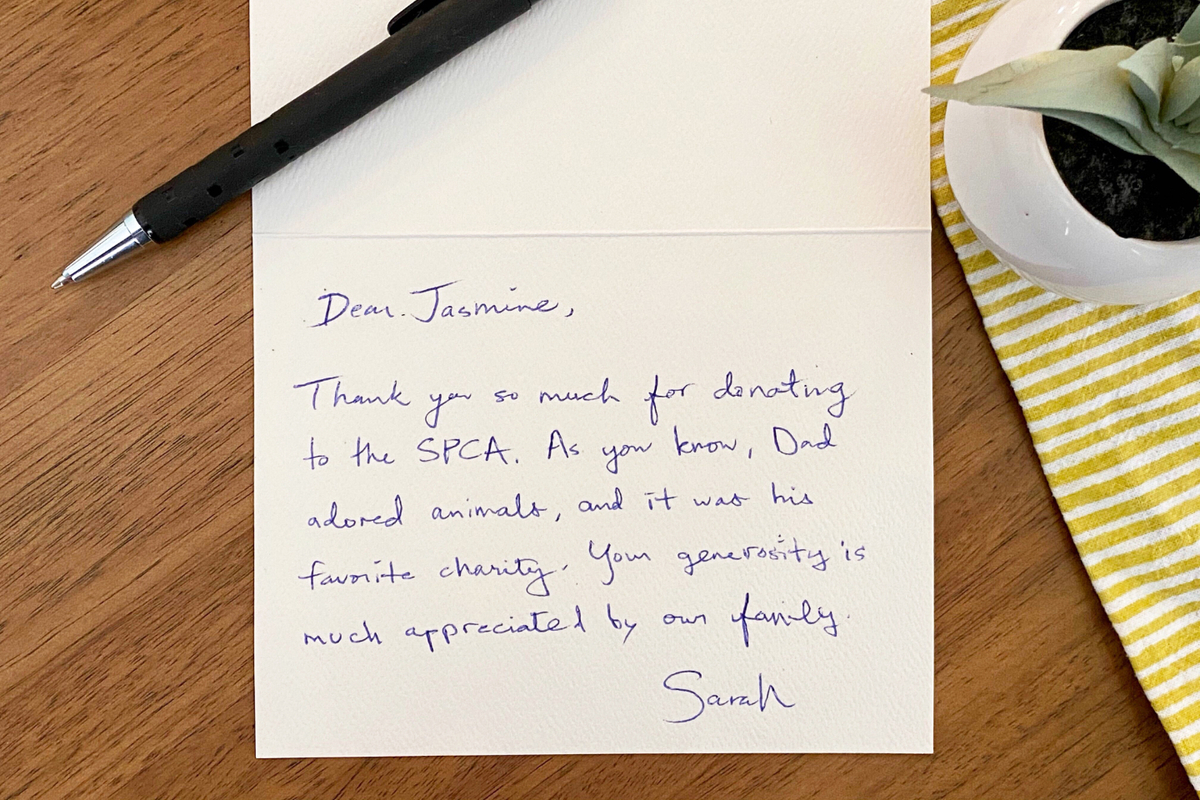 Dear Jasmine,
Thank you so much for donating
to the SPCA. As you know, Dad
adored animals, and it was his
favorite charity. Your generosity is
much appreciated by our family.
Sarah